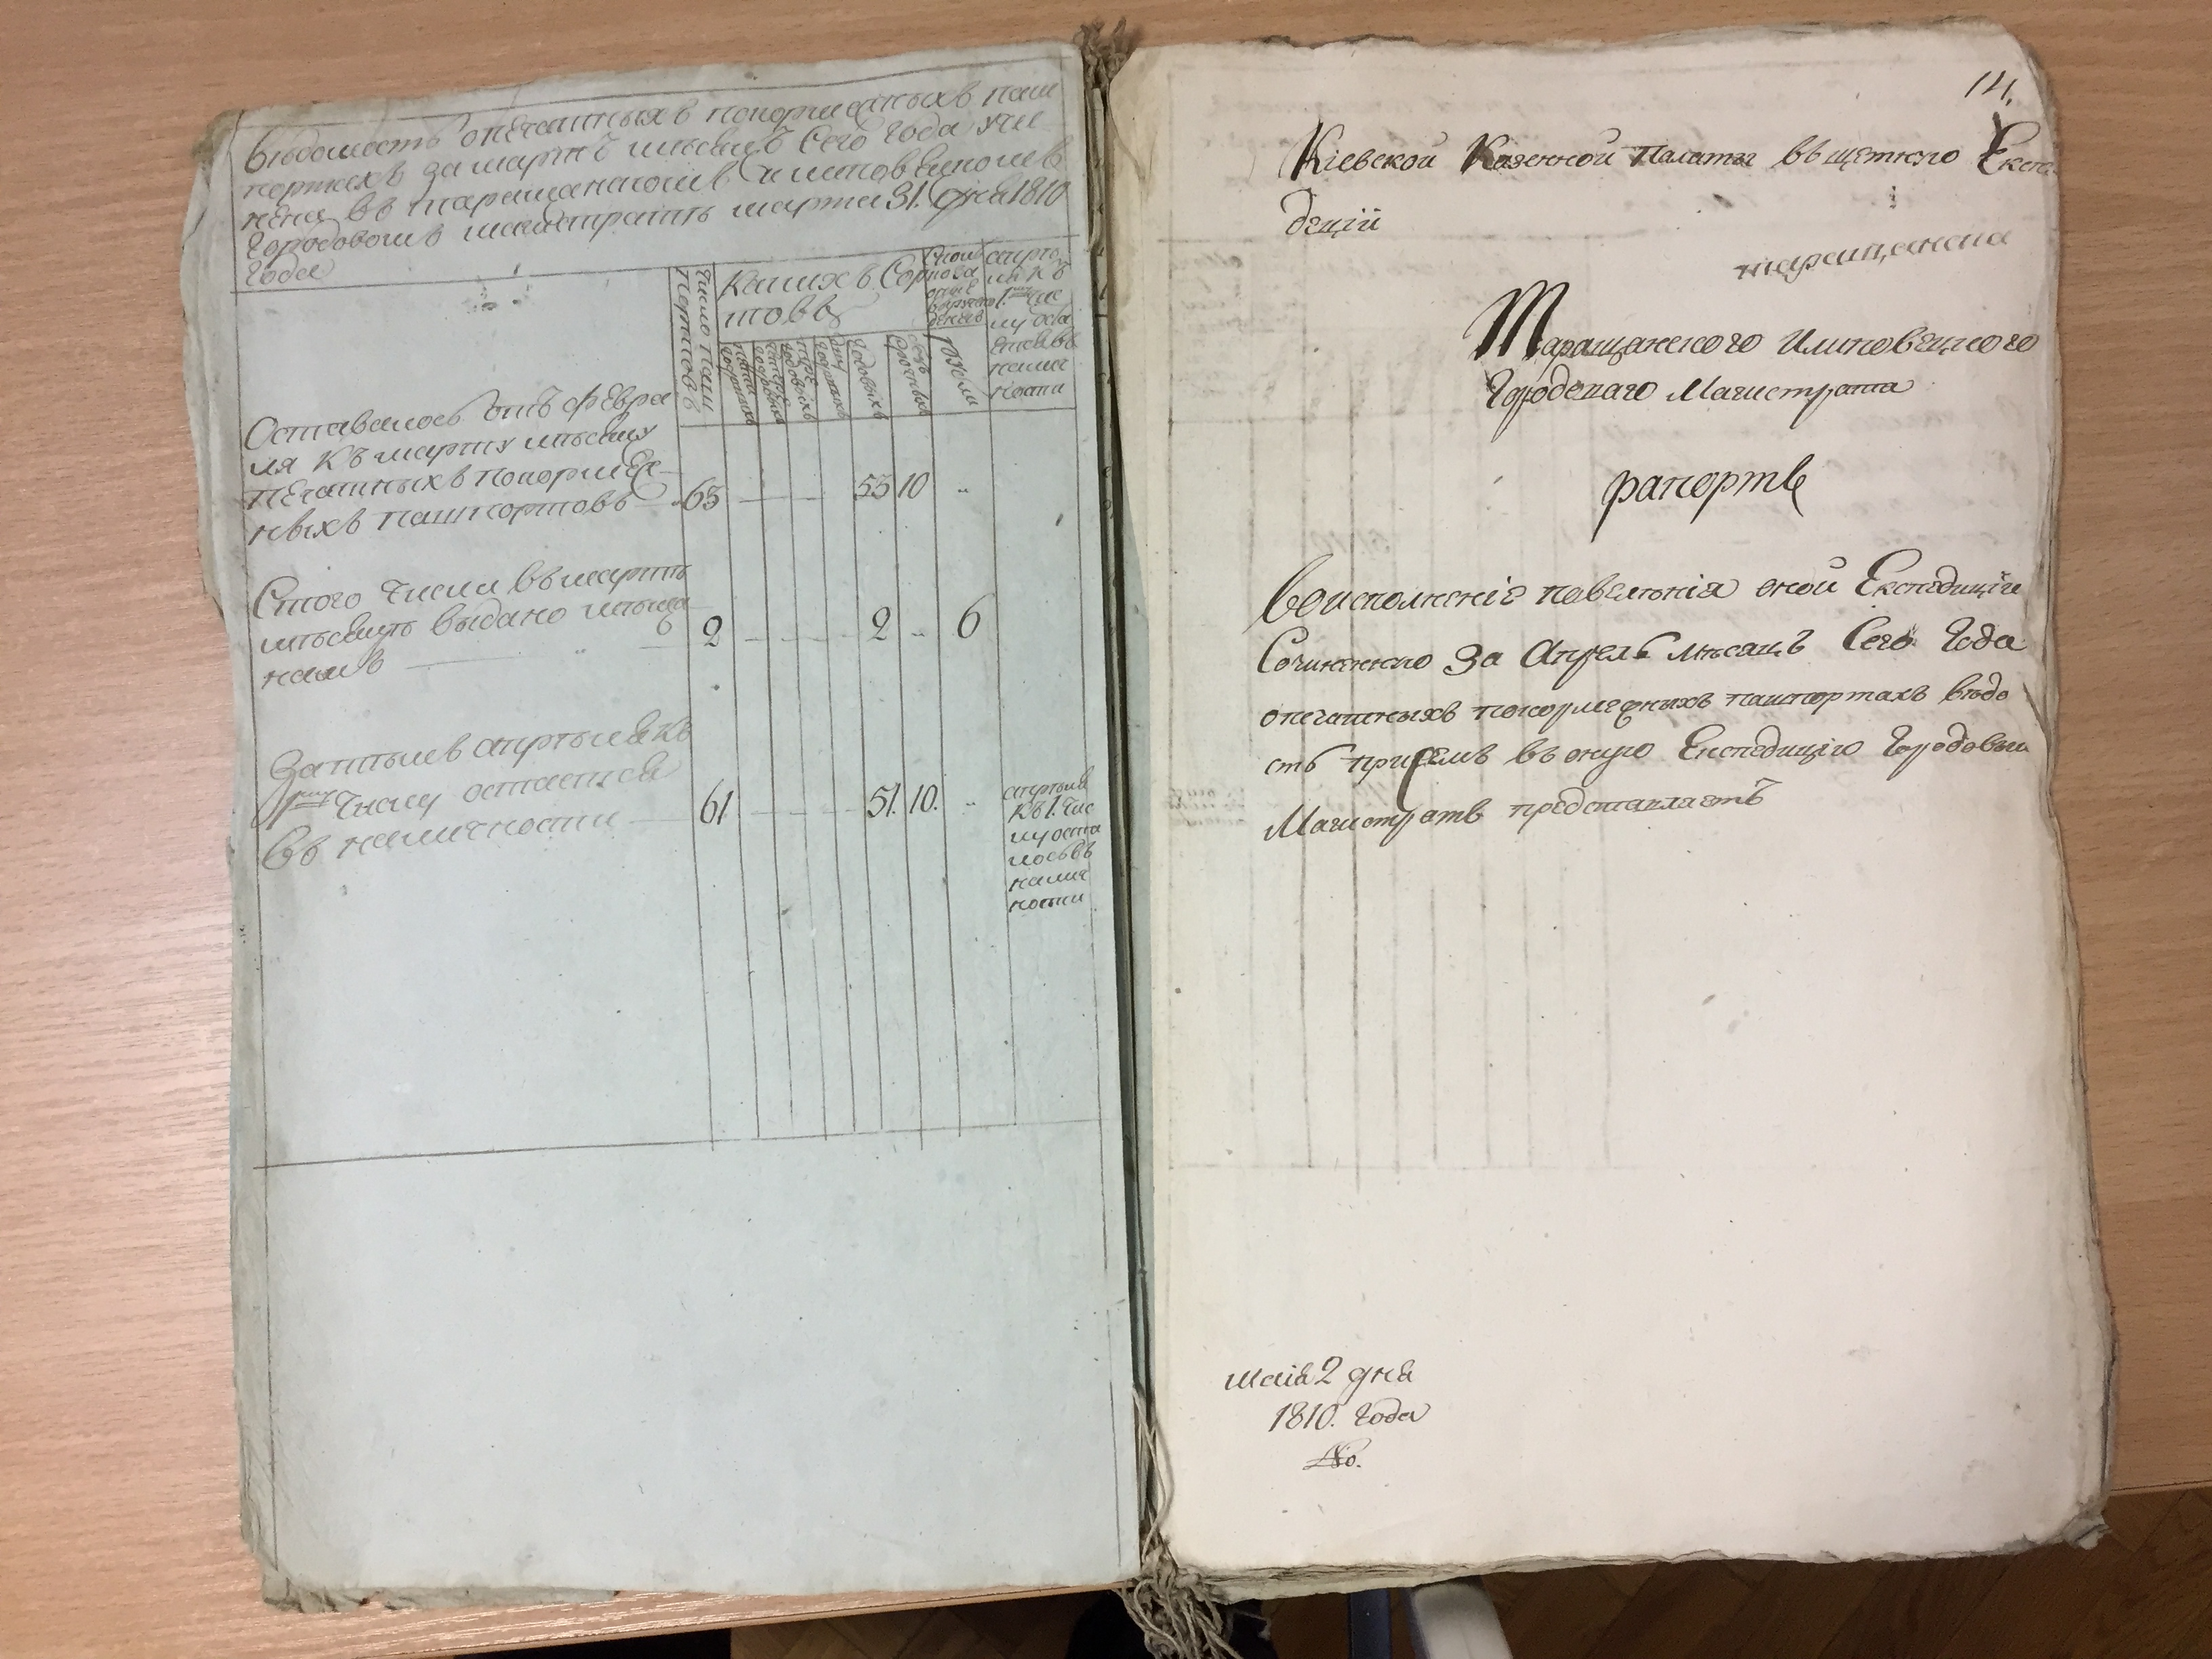 Вѣдомость опечатныхъ покормежныхъ паш
портахъ за мартъ мѣсяцъ Сего Года учи
нена въ таращанскомъ илиповецкомъ
Городовомъ магистратѣ марта 31. дня 1810
Года
Число паш
портовъ
Какихъ Сор
товъ
годовыхъ
рубли
апре
ля къ
1му чис
лу оста
лось въ
налич
ности
Оставалось отъ февра
ля Къ марту мѣсяцу
печатныхъ покормеж
ныхъ пашпортовъ 63 53 10
Стого числа въ мартѣ
мѣсяцѣ выдано мѣща
намъ 2 2 6
Затѣмъ апрѣля къ
1му Числу остается
въ наличности 61 51. 10.
апрѣля
къ 1. чис
лу оста
лось въ
налич
ности
14.
Кіевской Казенной палаты въ щетную Експе
дицію
таращанска
Таращанского Илиповецкого
Городового Магистрата
рапортъ
Воисполненіе повелѣнія оной Експедиціи
Сочиненную За Апрель мѣсяцъ Сего Года
опечатныхъ покормежныхъ пашпортахъ вѣдо
сть присемъ въ оную Експедицію Городовый
Магистратъ представляетъ
маія 2 дня
1810. Года
№.